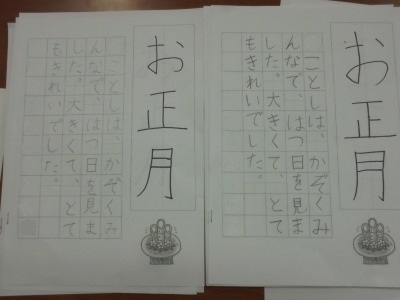 お正月
ことしは、かぞくみ
んなで、はつ日を見ま
した。大きくて、とて
もきれいでした。
お正月
ことしは、かぞくみ
んなで、はつ日を見ま
した。大きくて、とて
もきれいでした。